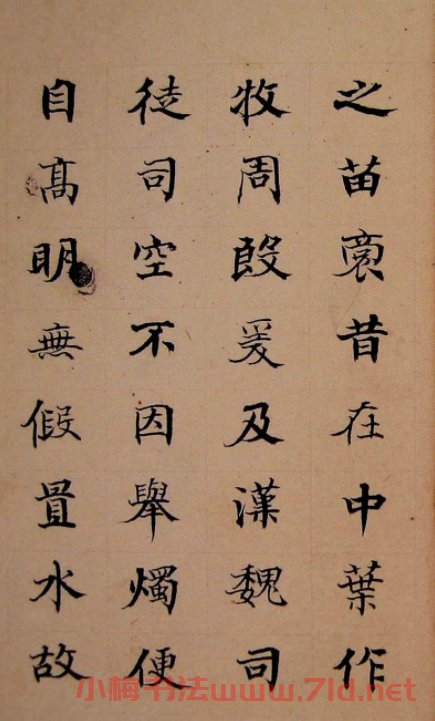 之苗裔昔在中葉作
牧周殷爰及漢魏司
徒司空不因舉燭便
自髙明無假置水故
小梅书法www.7ld.net